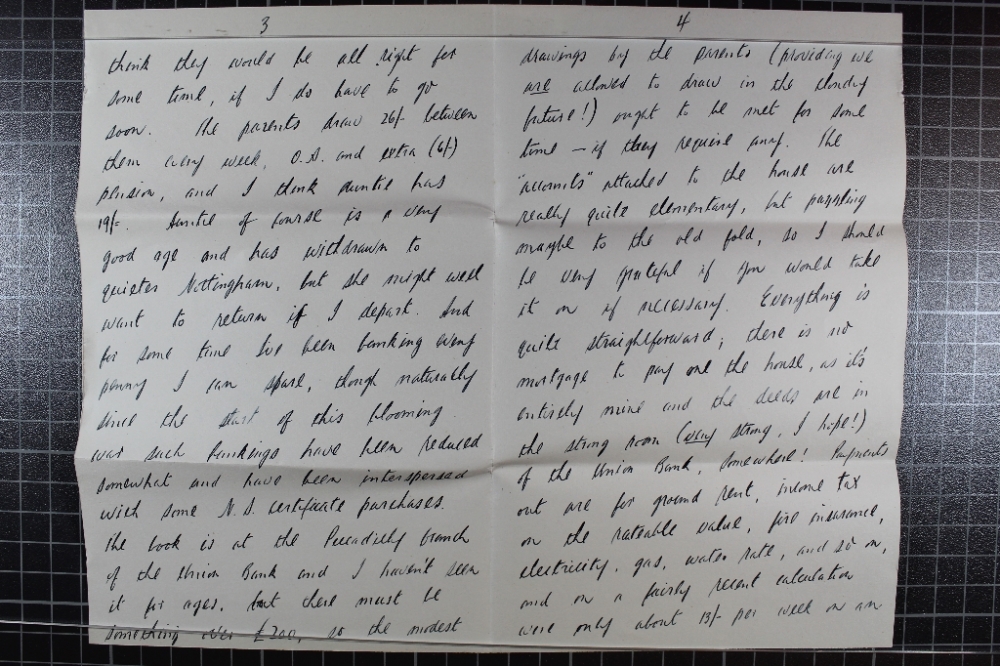 3
think they would be all right for
some time, if I do have to go
soon. The parents draw 26/- between
them every week, O.A. and extra (6/)
pension, and I think auntie has
19/-. Auntie of course is a very
good age and has withdrawn to
quieter Nottingham, but she might well
want to return if I depart. And
for some time I've been banking every
penny I can spare, though naturally
since the start of this blooming
war such bankings have been reduced
somewhat and have been interspersed
with some N.S. certificate purchases.
The book is at the Piccadilly branch
of the Union Bank and I haven't seen
it for ages, but there must be
something over £200, so the modest
4
drawings by the parents (providing we
are allowed to draw in the cloudy
future!) ought to be met for some
time – if they require any. The
"accounts" attached to the house are
really quite elementary, but puzzling
maybe to the old folk, so I should
be very grateful if you would take
it on if necessary. Everything is
quite straightforward; there is no
mortgage to pay on the house, as it's
entirely mine and the deeds are in
the strong room (very strong, I hope!)
of the Union Bank, somewhere! Payments
out are for ground rent, income tax
on the rateable value, fire insurance,
electricity, gas, water rate, and so on,
and on a fairly recent calculation
were only about 13/- per week on an